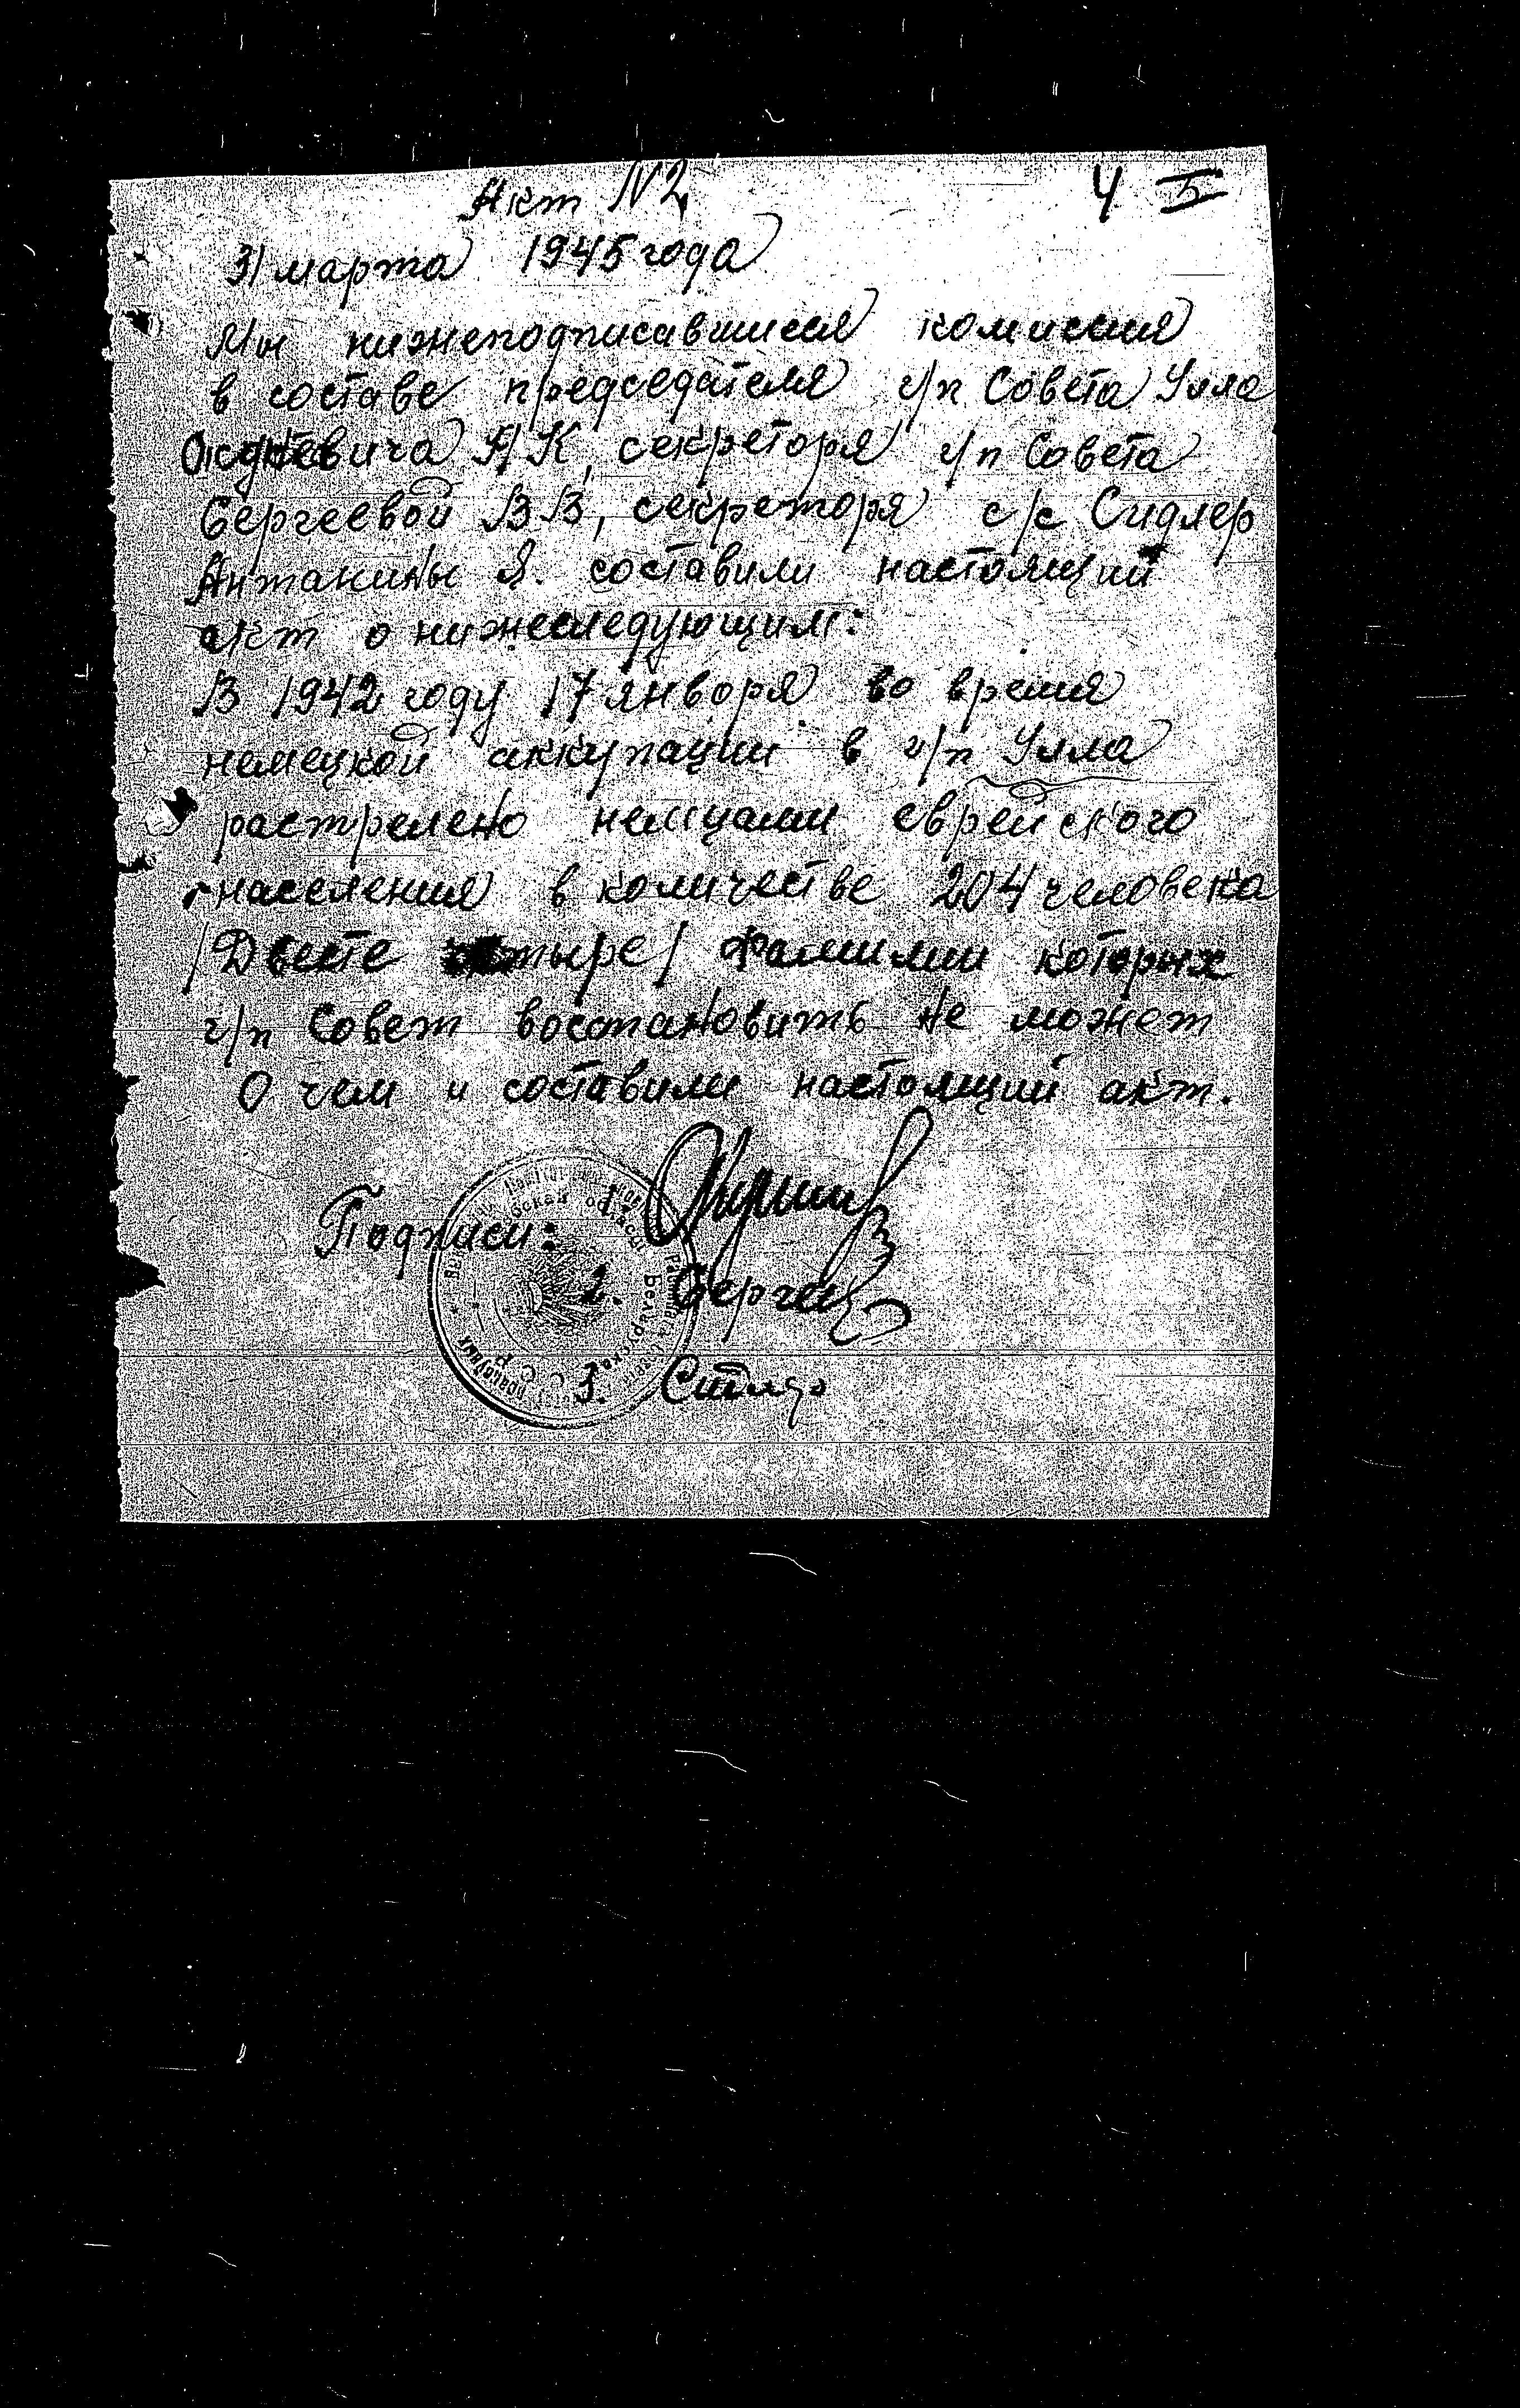 Акт N2
4 5
31 марта 1945 года
Мы нижеподписавшиеся комиссия
в составе председателя г/п Совета Улла
секреторя г/п Совета
Сергеевой В В, секреторя с/с Сидлер
Антанины Я. составили настоящий
акт о нижеследующим:
В 1942 году 17 января во время
немецкой аккупации в г/п Улла
растрелено немцами еврейского
населения в количестве 204 человека
/Двесте четыре/ фамилии которых
г/п Совет востановить не может
О чем и составили настоящий акт.
Подписи: 1.
2. Сергее
3.